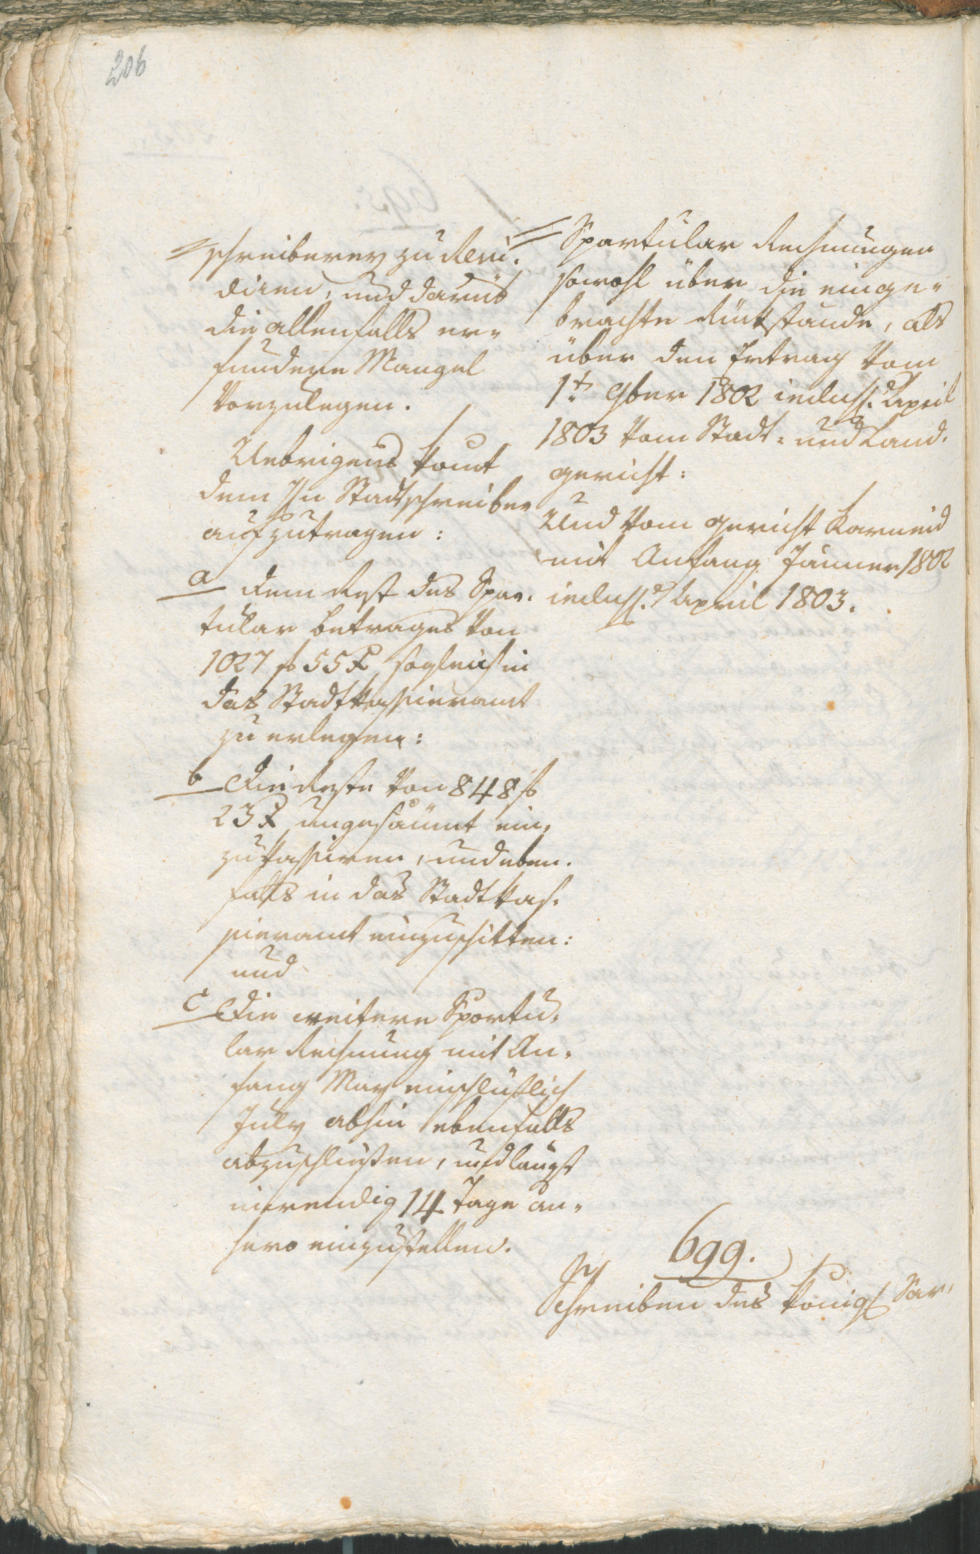 206
schreiberey zu Revi-
diren, und daraus
die allenfalls er-
fundene Mangel
vorzulegen.
Uebrigens kömt
dem Hn Stadtschreiber
aufzutragen:
a dem Rest des Spor-
tular betrages von
1027 f 55 x sogleich in
das Stadtkassieramt
zu erlegen:
b Die Reste von 848 f
23 x ungesäumt ein-
zukassiren, und eben-
falls in das Stadtkas-
sieramt einzuschitten:
und
c Die weitere Sportu-
lar Rechnung mit An-
fang May einschlüßlich
July abhin ebenfalls
abzuschließen, und längst
inwendig 14 Tage an-
hero einzustellen.
Sportular Rechnungen
sowohl über die einge-
brachte Rükstände, als
über den Ertrag vom
1t 9ber 1802 inclus. April
1803 vom Stadt- und Land-
gericht:
Und vom Gericht Karneid
mit Anfang Jänner 1802
inclus. April 1803.
699.
Schreiben des königl Sar-